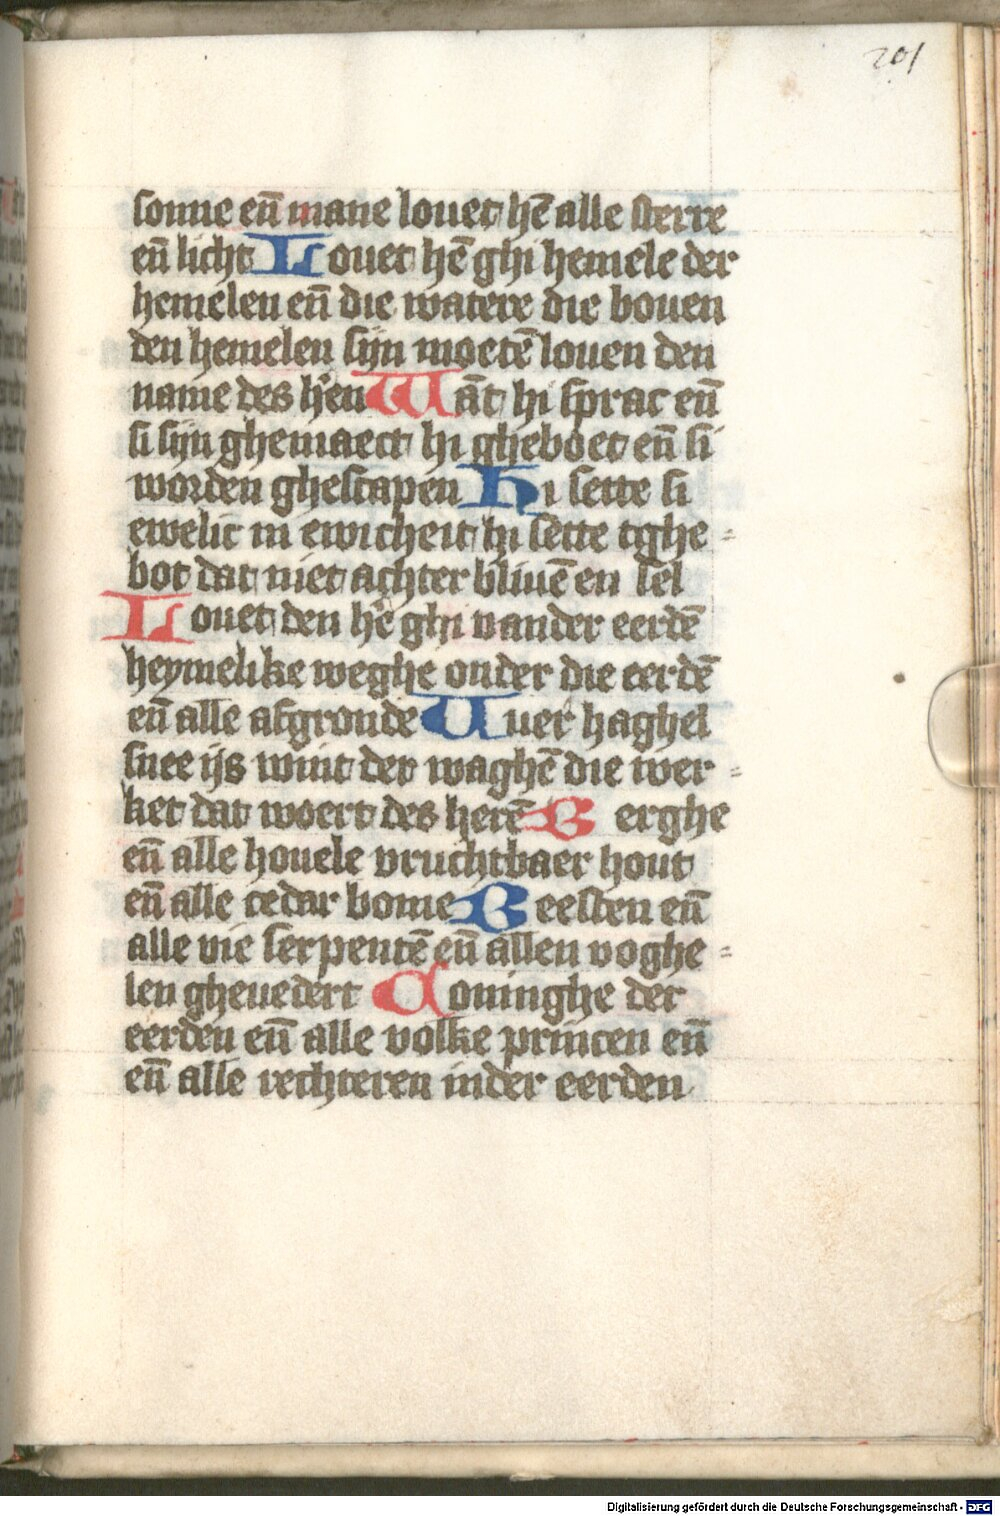 201
sonne en̄ mane louet hē alle sterre
en̄ licht Louet hē ghi hemele der
hemelen en̄ die watere die bouen
den hemelen sijn moetē louen den
name des h'en Wāt hi sprac en̄
si sijn ghemaect hi gheboet en̄ si
worden ghescapen Hi sette si
ewelic in ewicheit hi sette tghe=
bot dat niet achter bliuē en sel
Louet den hē ghi vander eerdē
heymelike weghe onder die eerdē
en̄ alle afgronde Uuer haghel
snee ijs wint der waghē die wer=
ket dat woert des herē Berghe
en̄ alle houele vruchtbaer hout
en̄ alle cedar bome Beesten en̄
alle vie serpentē en̄ allen voghe=
len gheuedert Coninghe der
eerden en̄ alle volke princen en̄
en̄ alle rechteren inder eerden
Digitalisierung gefördert durch die Deutsche Forschungsgemeinschaft - DFG